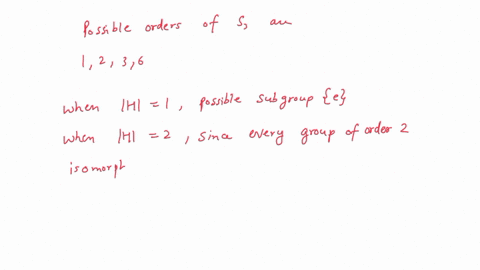 Possible orders of S, are
1, 2, 3, 6
when |H| = 1, possible subgroup {e}
when |H| = 2, since every group of order 2
isomorph